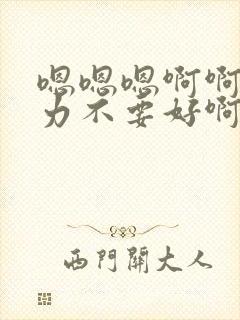 嗯嗯嗯啊啊
力不要好啊
西门关大人